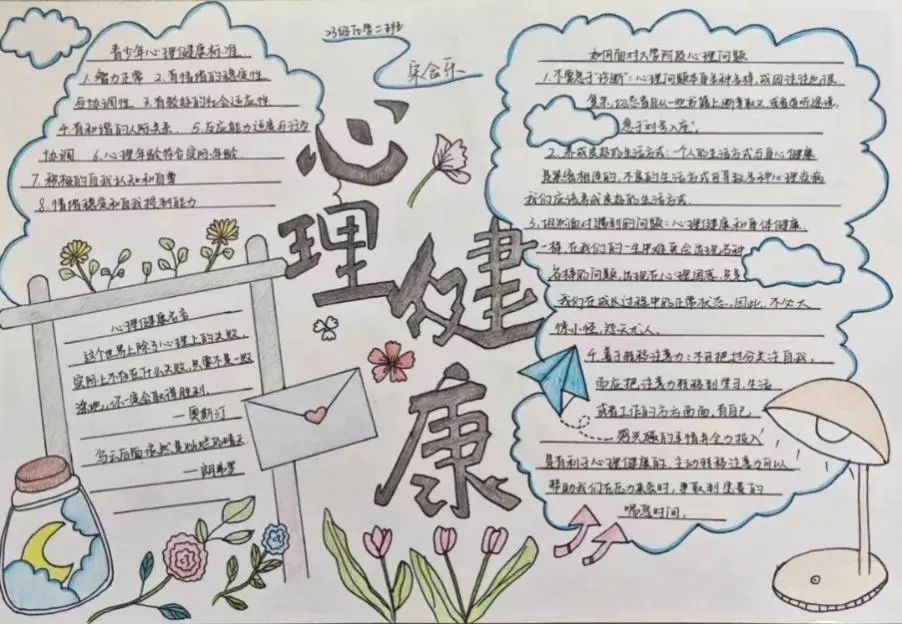 青少年心理健康标准.
1.智力正常 2.有情绪的稳定性
与协调性 3.有较好的社会适应性
4.有和谐的人际关系. 5.反应能力适度与行为
协调 6.心理年龄符合实际年龄.
7.积极的自我认知和自尊
8.情绪稳定和自我控制能力
心理健康名言
这个世界上除了心理上的失败,
实际上不存在什么失败,只要不是一败
涂地,你一定会取得胜利.
——奥斯汀
乌云后面依然是灿烂的晴天.
——朗弗罗
二班
心理健康
如何面对大学阶段心理问题
1.不要急于"诊断":心理问题本身多种多样,成因往往也很
复杂,切忌盲目从一些书籍上断章取义,或者道听途说,
急于对号入座".
2.养成良好的生活方式:个人的生活方式与身心健康
是紧密相连的,不良的生活方式可导致多种心理疾病
我们应该养成良好的生活方式.
3.坦然面对遇到的问题:心理健康和身体健康
一样,在我们的一生中难免会出现各种
各样的问题,出现在心理困惑,只是
我们在成长过程中的正常状态.因此,不必大
惊小怪,怨天尤人.
4.善于转移注意力:不可把过分关注自我.
而应把注意力转移到学习,生活
或者工作的方方面面,有自己
感兴趣的事情并全力投入
是有利于心理健康的,主动转移注意力可以
帮助我们在压力来袭时,争取到宝贵的
喘息时间.